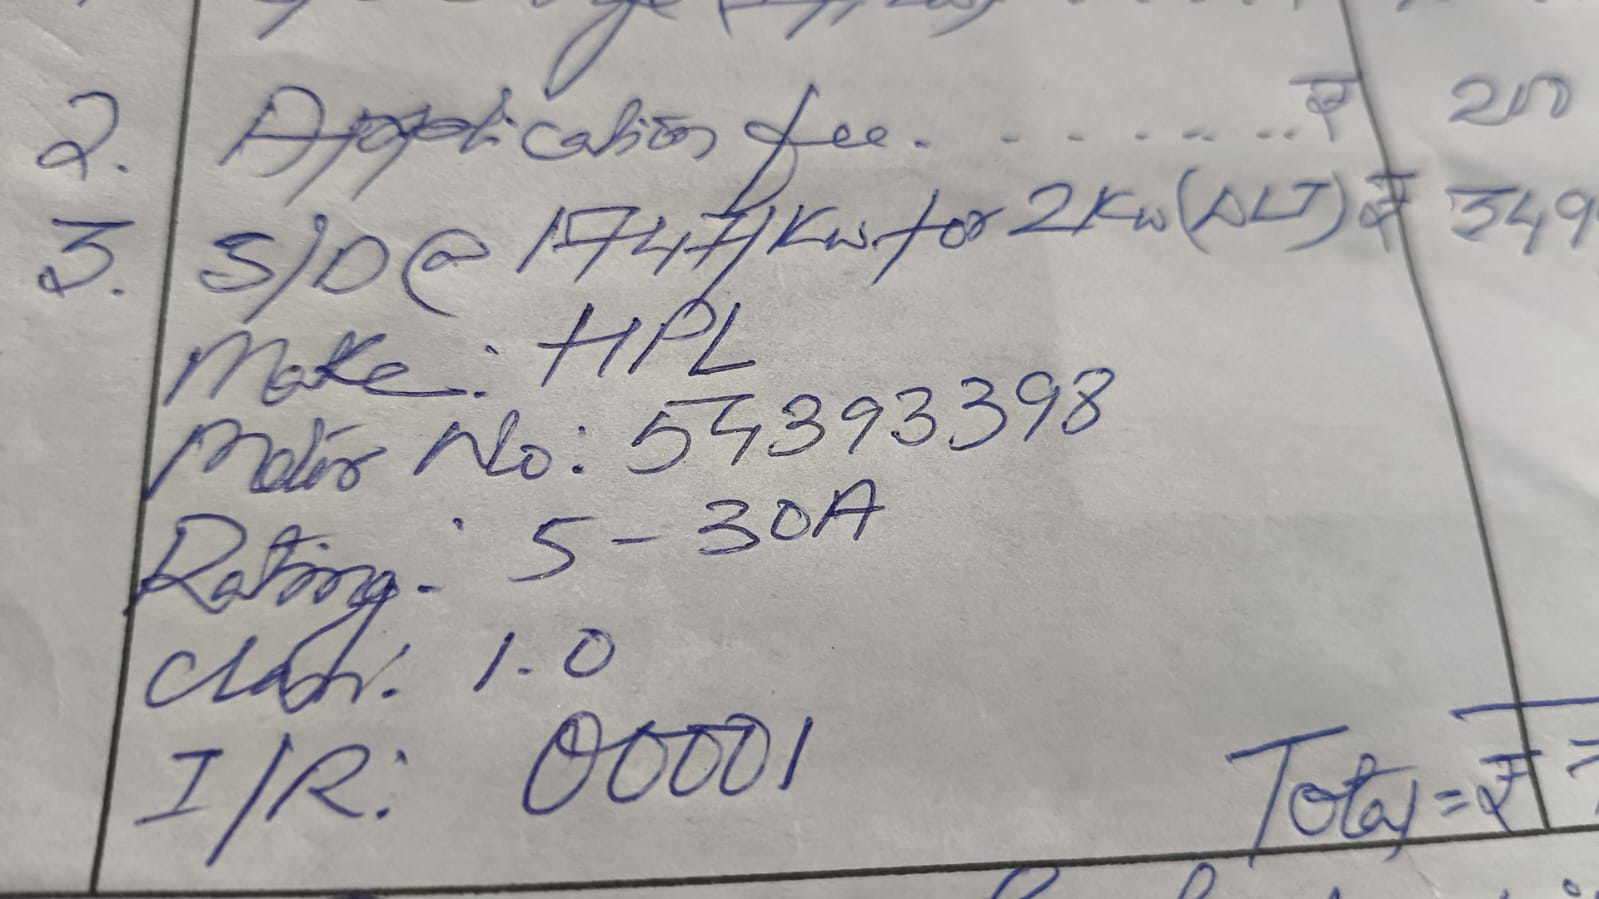 2. Application fee. . . . . . . . . ₹ 20
3. S/D @ 1747/Kw for 2Kw (DLJ) ₹ 349
Make: HPL
Meter No: 54393398
Rating: 5-30A
Class: 1.0
I/R: 00001
Total = ₹